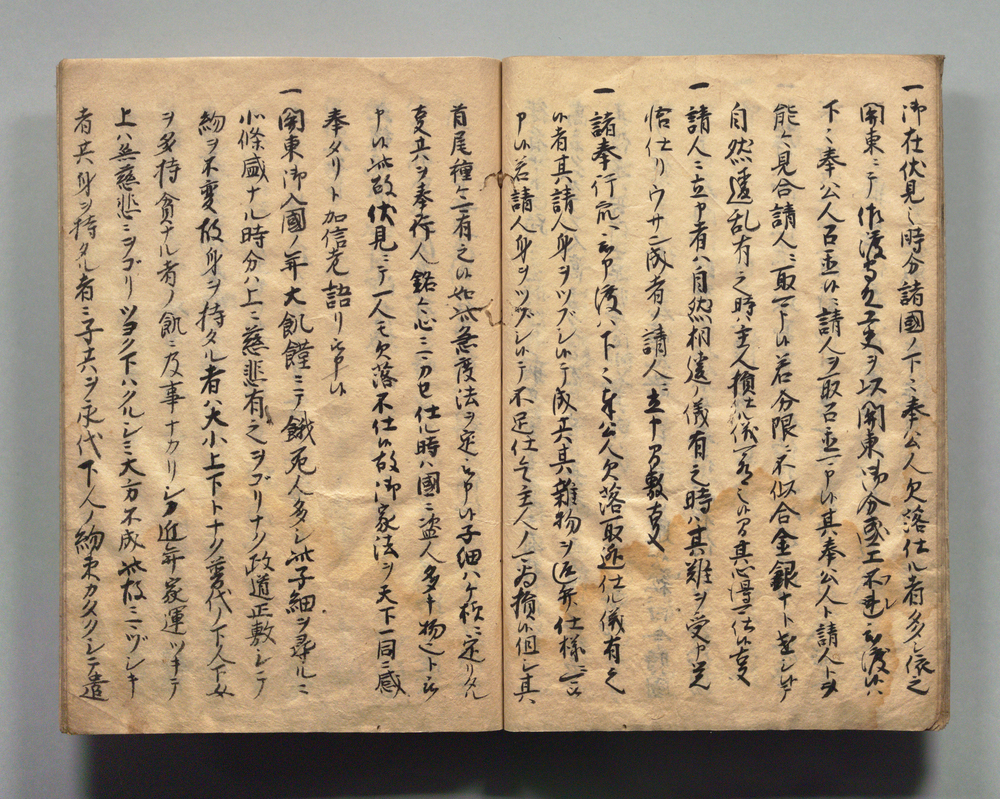 一御在伏見ノ時分諸國ノ下々奉公人欠落仕ル者多シ依之
関東ニテ被仰渡
下々奉公人召並ニ請人ヲ取召並可申其奉公人ト請人トヲ
能々見合請人ニ取可申若分限ニ不似合金銀ナトヲ
自然違乱有之時ハ主人損仕儀其心得可仕事
一請人ニ立申者ハ自然相違ノ儀有之時ハ其難ヲ受申覚
悟仕リウサン成者ノ請人ニ立申間敷事
一諸奉行衆ヘ被申渡ハ下々奉公人欠落取逃仕ル儀有之
候者其請人身ヲツブシ候テ成共其雑物ヲ返弁仕様ニ可
申候若請人身ヲツブシ候テ不足仕ハ主人ノ可為損候但シ其
首尾種々有之候如此無法ヲ定被申候子細ハケ様ニ定リタル
事共ヲ奉存人銘々心ニ可任仕ル時ハ國ニ盗人多キ物也ト被
申候此故伏見ニテ一人モ欠落不仕候故御家法ヲ天下一同ニ感
奉タリト加信老語リ被申候
一関東御入國ノ年大飢饉ニテ餓死人多シ此子細ヲ尋ルニ
小條盛ナル時分ハ上ニ慈悲有之ヲゴリナク政道正敷シテ
約ヲ不変故身ヲ持タル者ハ大小上下トナク重代ノ下人下女
ヲ多持貧ナル者ノ飢ニ及事ナカリシカ近年家運ツキテ
上ハ無慈悲ニヲゴリツヨク下ハクルシミ大方不成此故ニマヅシキ
者共身ヲ持タル者ニ子共ヲ永代下人ノ約束カタクシテ遣